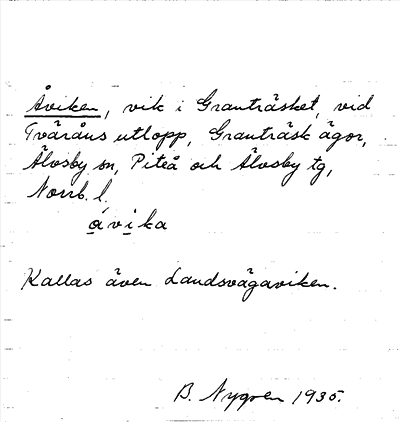 Åviken, vik i Granträsket, vid
Tväråns utlopp, Granträsk ägor,
Älvsby sn, Piteå och Älvsby tg,
Norrb. l.
a̲´vi̲ka
Kallas även Landsvägaviken.
B. Nygren 1935.